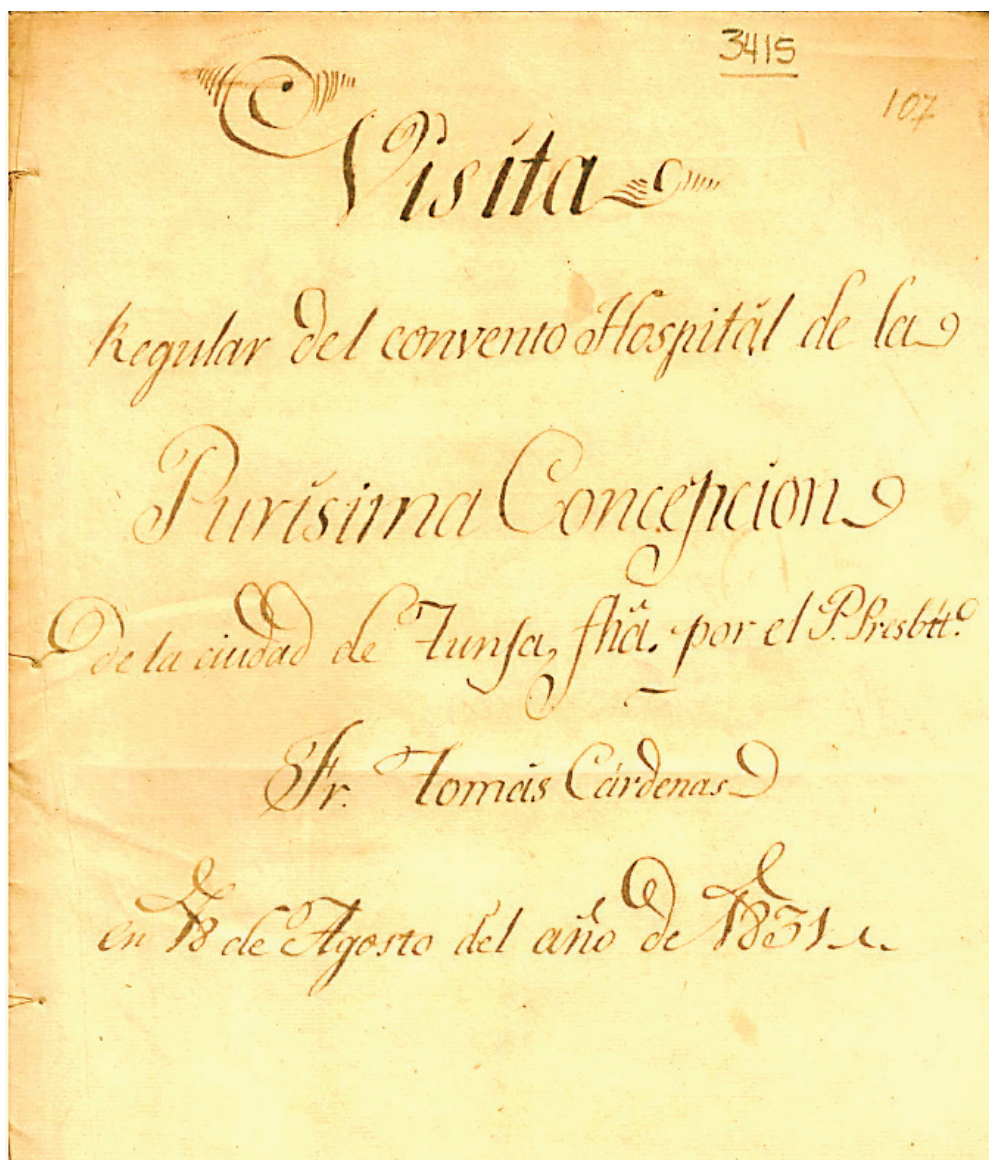 3415
107
Visita
Regular del convento Hospitál de la
Purísima Concepcion
de la ciudad de Tunja, fhã. por el P. Presbtt.º
Fr. Tomás Cárdenas
en 18 de Agosto del año de 1831